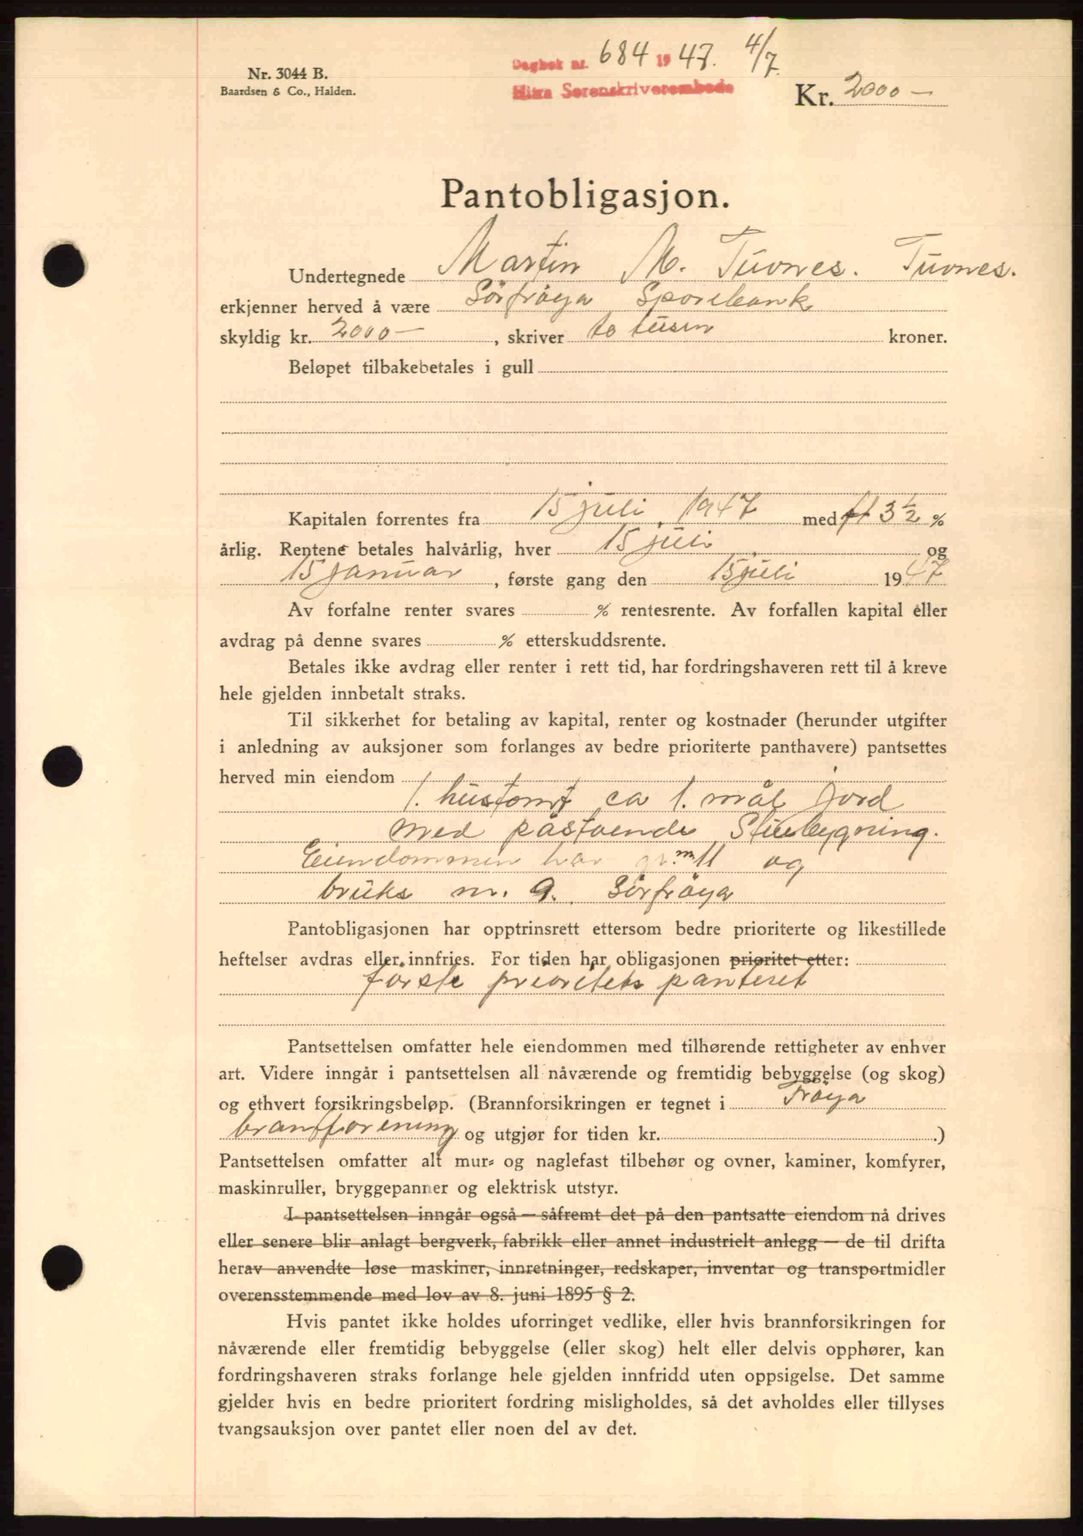 Nr. 3044 B.
Baardsen & Co., Halden.
Dagbok nr. 684 1947. 4/7.
Hitra Sorenskriverembede
Kr. 2000 –
Pantobligasjon.
Undertegnede Martin M. Tuvnes. Tuvnes.
erkjenner herved å være Sørfrøya Sparebank
skyldig kr. 2000 – , skriver to tusen kroner.
Beløpet tilbakebetales i gull
Kapitalen forrentes fra 15 juli 1947 med 3 ½ %
årlig. Rentene betales halvårlig, hver 15 juli og
15 januar , første gang den 15 juli 1947
Av forfalne renter svares % rentesrente. Av forfallen kapital eller
avdrag på denne svares % etterskuddsrente.
Betales ikke avdrag eller renter i rett tid, har fordringshaveren rett til å kreve
hele gjelden innbetalt straks.
Til sikkerhet for betaling av kapital, renter og kostnader (herunder utgifter
i anledning av auksjoner som forlanges av bedre prioriterte panthavere) pantsettes
herved min eiendom
1. hustomt ca 1. mål jord
med påstående Stuebygning.
Eiendommen har gr. nr. 11 og
bruks nr. 9. Sørfrøya
Pantobligasjonen har opptrinsrett ettersom bedre prioriterte og likestillede
heftelser avdras eller innfries. For tiden har obligasjonen prioritet etter:
første prioritets panteret
Pantsettelsen omfatter hele eiendommen med tilhørende rettigheter av enhver
art. Videre inngår i pantsettelsen all nåværende og fremtidig bebyggelse (og skog)
og ethvert forsikringsbeløp. (Brannforsikringen er tegnet i Frøya
brandforening og utgjør for tiden kr. .)
Pantsettelsen omfatter alt mur- og naglefast tilbehør og ovner, kaminer, komfyrer,
maskinruller, bryggepanner og elektrisk utstyr.
I pantsettelsen inngår også — såfremt det på den pantsatte eiendom nå drives
eller senere blir anlagt bergverk, fabrikk eller annet industrielt anlegg — de til drifta
herav anvendte løse maskiner, innretninger, redskaper, inventar og transportmidler
overensstemmende med lov av 8. juni 1895 § 2.
Hvis pantet ikke holdes uforringet vedlike, eller hvis brannforsikringen for
nåværende eller fremtidig bebyggelse (eller skog) helt eller delvis opphører, kan
fordringshaveren straks forlange hele gjelden innfridd uten oppsigelse. Det samme
gjelder hvis en bedre prioritert fordring misligholdes, så det avholdes eller tillyses
tvangsauksjon over pantet eller noen del av det.